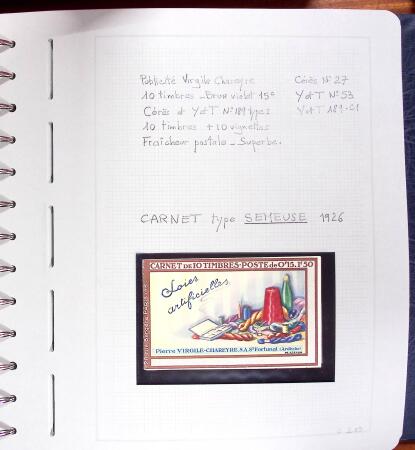 Publicité Virgile Chareyre
10 timbres - Brun violet 15c
Cérès et Y et T N° 189 types
10 timbres + 10 vignettes
Fraîcheur postale - Superbe.
Cérès N° 27
Y et T N° 53
Y et T 189-C1
CARNET type SEMEUSE 1926
CARNET DE 10 TIMBRES-POSTE de 0f15. 1f50
Soies
artificielles
Pierre VIRGILE-CHAREYRE. S.A. St Fortunat (Ardèche)